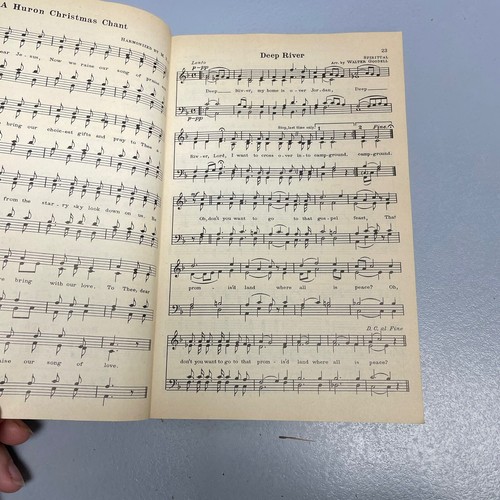 A Huron Christmas Chant
HARMONIZED BY M
ear Je - sus, Now we raise our song of
bring our choic-est gifts and pray to Thee
from the star - ry sky look down on us,
bring with our love. To Thee, dear
our song of love.
23
Deep River
SPIRITUAL
Arr. by WALTER GOODELL
Lento
p-pp
Deep Riv-er, my home is o-ver Jor-dan, Deep
p-pp
Stop, last time only
1
2
Fine
Riv-er, Lord, I want to cross o-ver in-to camp-ground. camp-ground.
Oh, don't you want to go to that gos-pel feast, That
prom - is'd land where all is peace? Oh,
D. C. al Fine
don't you want to go to that prom - is'd land where all is peace?